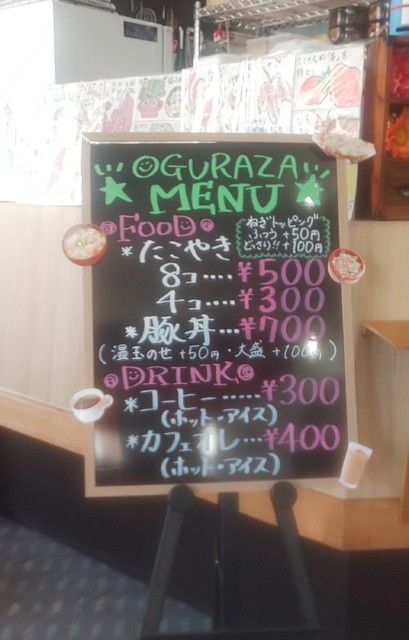 OGURAZA
MENU
FOOD
ねぎトッピング
ふつう +50円
どっさり!! +100円
*たこやき
8コ‥‥¥500
4コ‥‥¥300
*豚丼…¥700
(温玉のせ +50円・大盛 +100円)
DRINK
*コーヒー……¥300
(ホット・アイス)
*カフェオレ…¥400
(ホット・アイス)